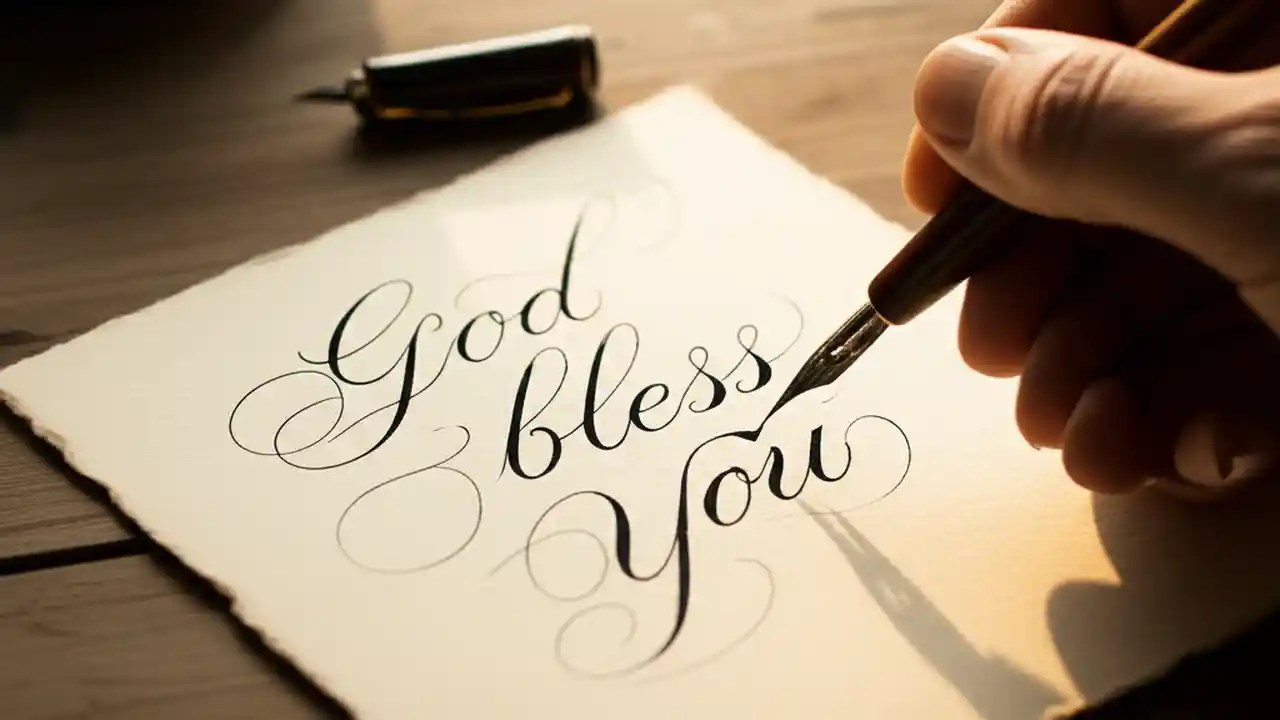 God
bless
You